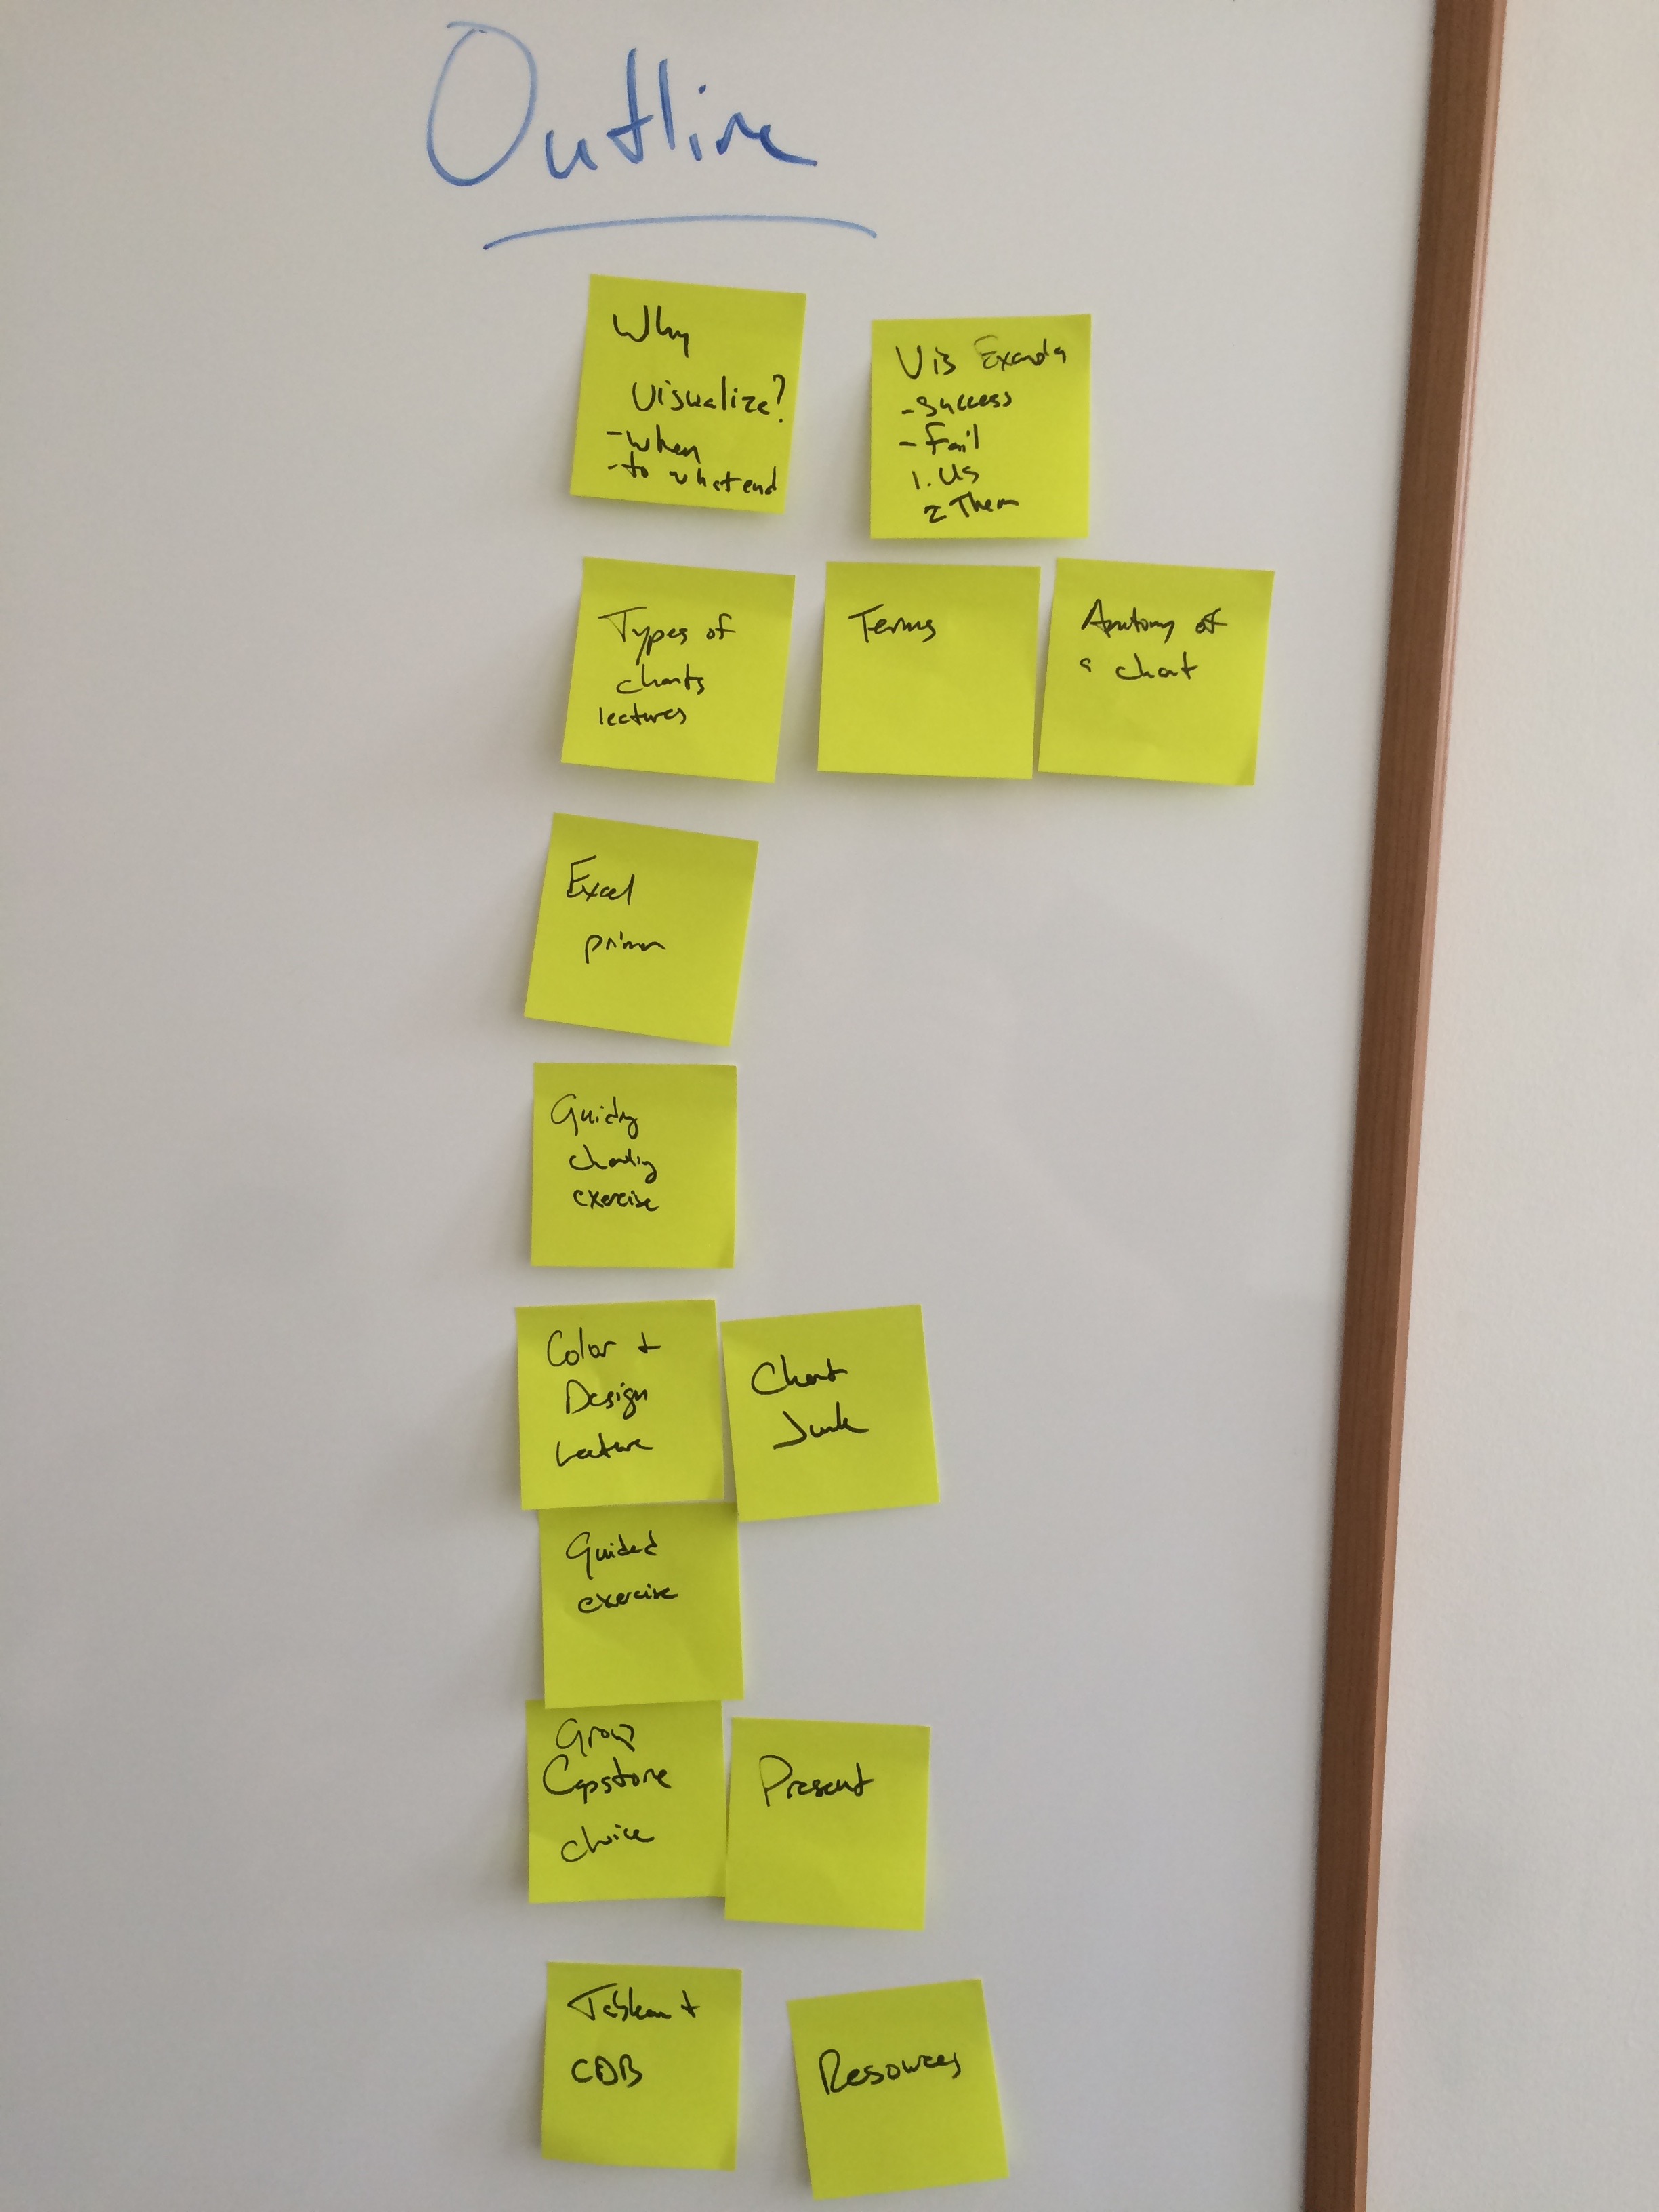 Outline
Why
Visualize?
- when
- to what end
Vis Example
- Success
- Fail
1. Us
2 Them
Types of
charts
lectures
Terms
Anatomy of
a chart
Excel
primer
Guiding
charting
exercise
Color +
Design
Lecture
Chart
Junk
Guided
exercise
Group
Capstone
choice
Present
Tableau +
CDB
Resources